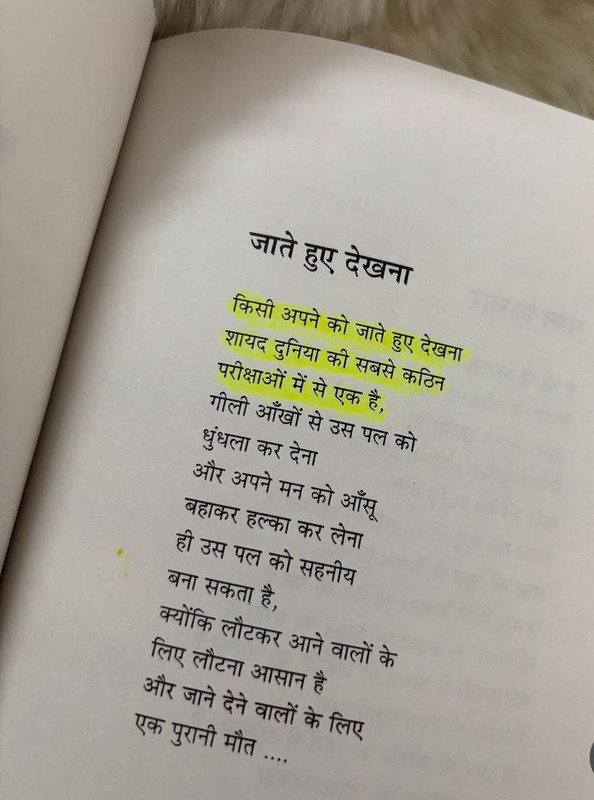 जाते हुए देखना
किसी अपने को जाते हुए देखना
शायद दुनिया की सबसे कठिन
परीक्षाओं में से एक है,
गीली आँखों से उस पल को
धुंधला कर देना
और अपने मन को आँसू
बहाकर हल्का कर लेना
ही उस पल को सहनीय
बना सकता है,
क्योंकि लौटकर आने वालों के
लिए लौटना आसान है
और जाने देने वालों के लिए
एक पुरानी मौत ....